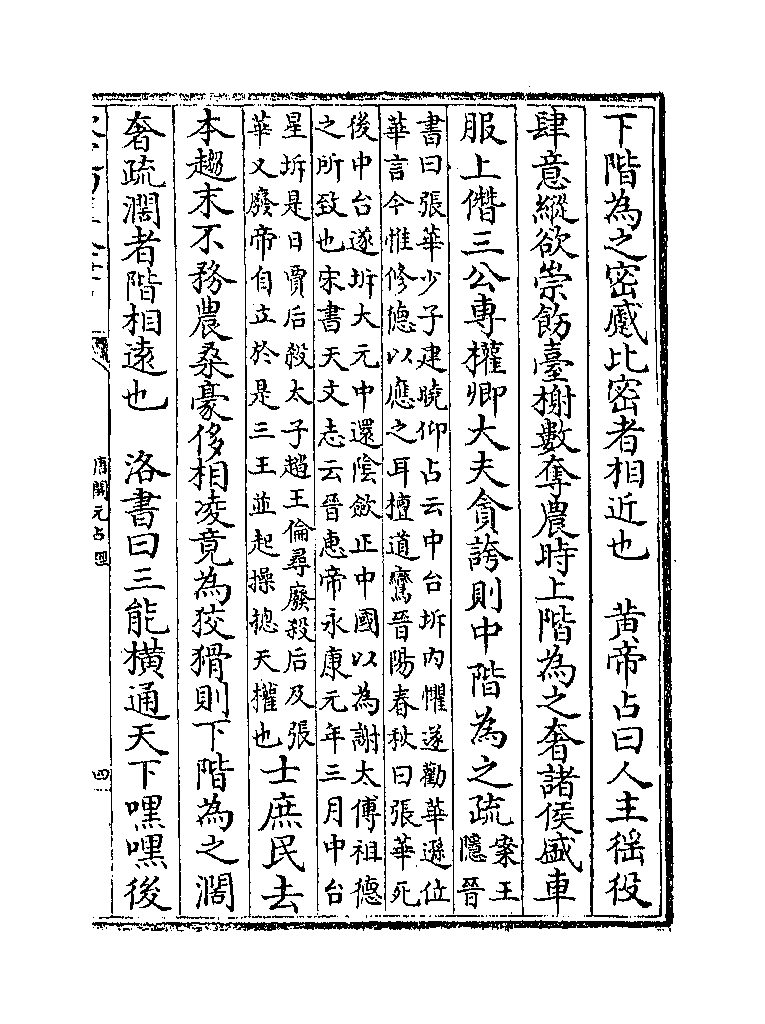 下階為之密蹙比密者相近也　黄帝占曰人主徭役
肆意縱欲崇飭臺榭數奪農時上階為之奢諸侯盛車
服上僭三公専權卿大夫貪誇則中階為之疏
案王
隱晉
書曰張華少子建曉仰占云中台坼内懼遂勸華遜位
華言今惟修徳以應之耳檀道鸞晉陽春秋曰張華死
後中台遂坼大元中還陰斂正中國以為謝太傅祖徳
之所致也宋書天文志云晉惠帝永康元年三月中台
星坼是日賈后殺太子趙王倫尋廢殺后及張
華又廢帝自立於是三王並起操摠天權也
士庶民去
本趨末不務農桑豪侈相凌竟為狡猾則下階為之濶
奢疏濶者階相遠也　洛書曰三能横通天下嘿嘿後
唐開元占
四